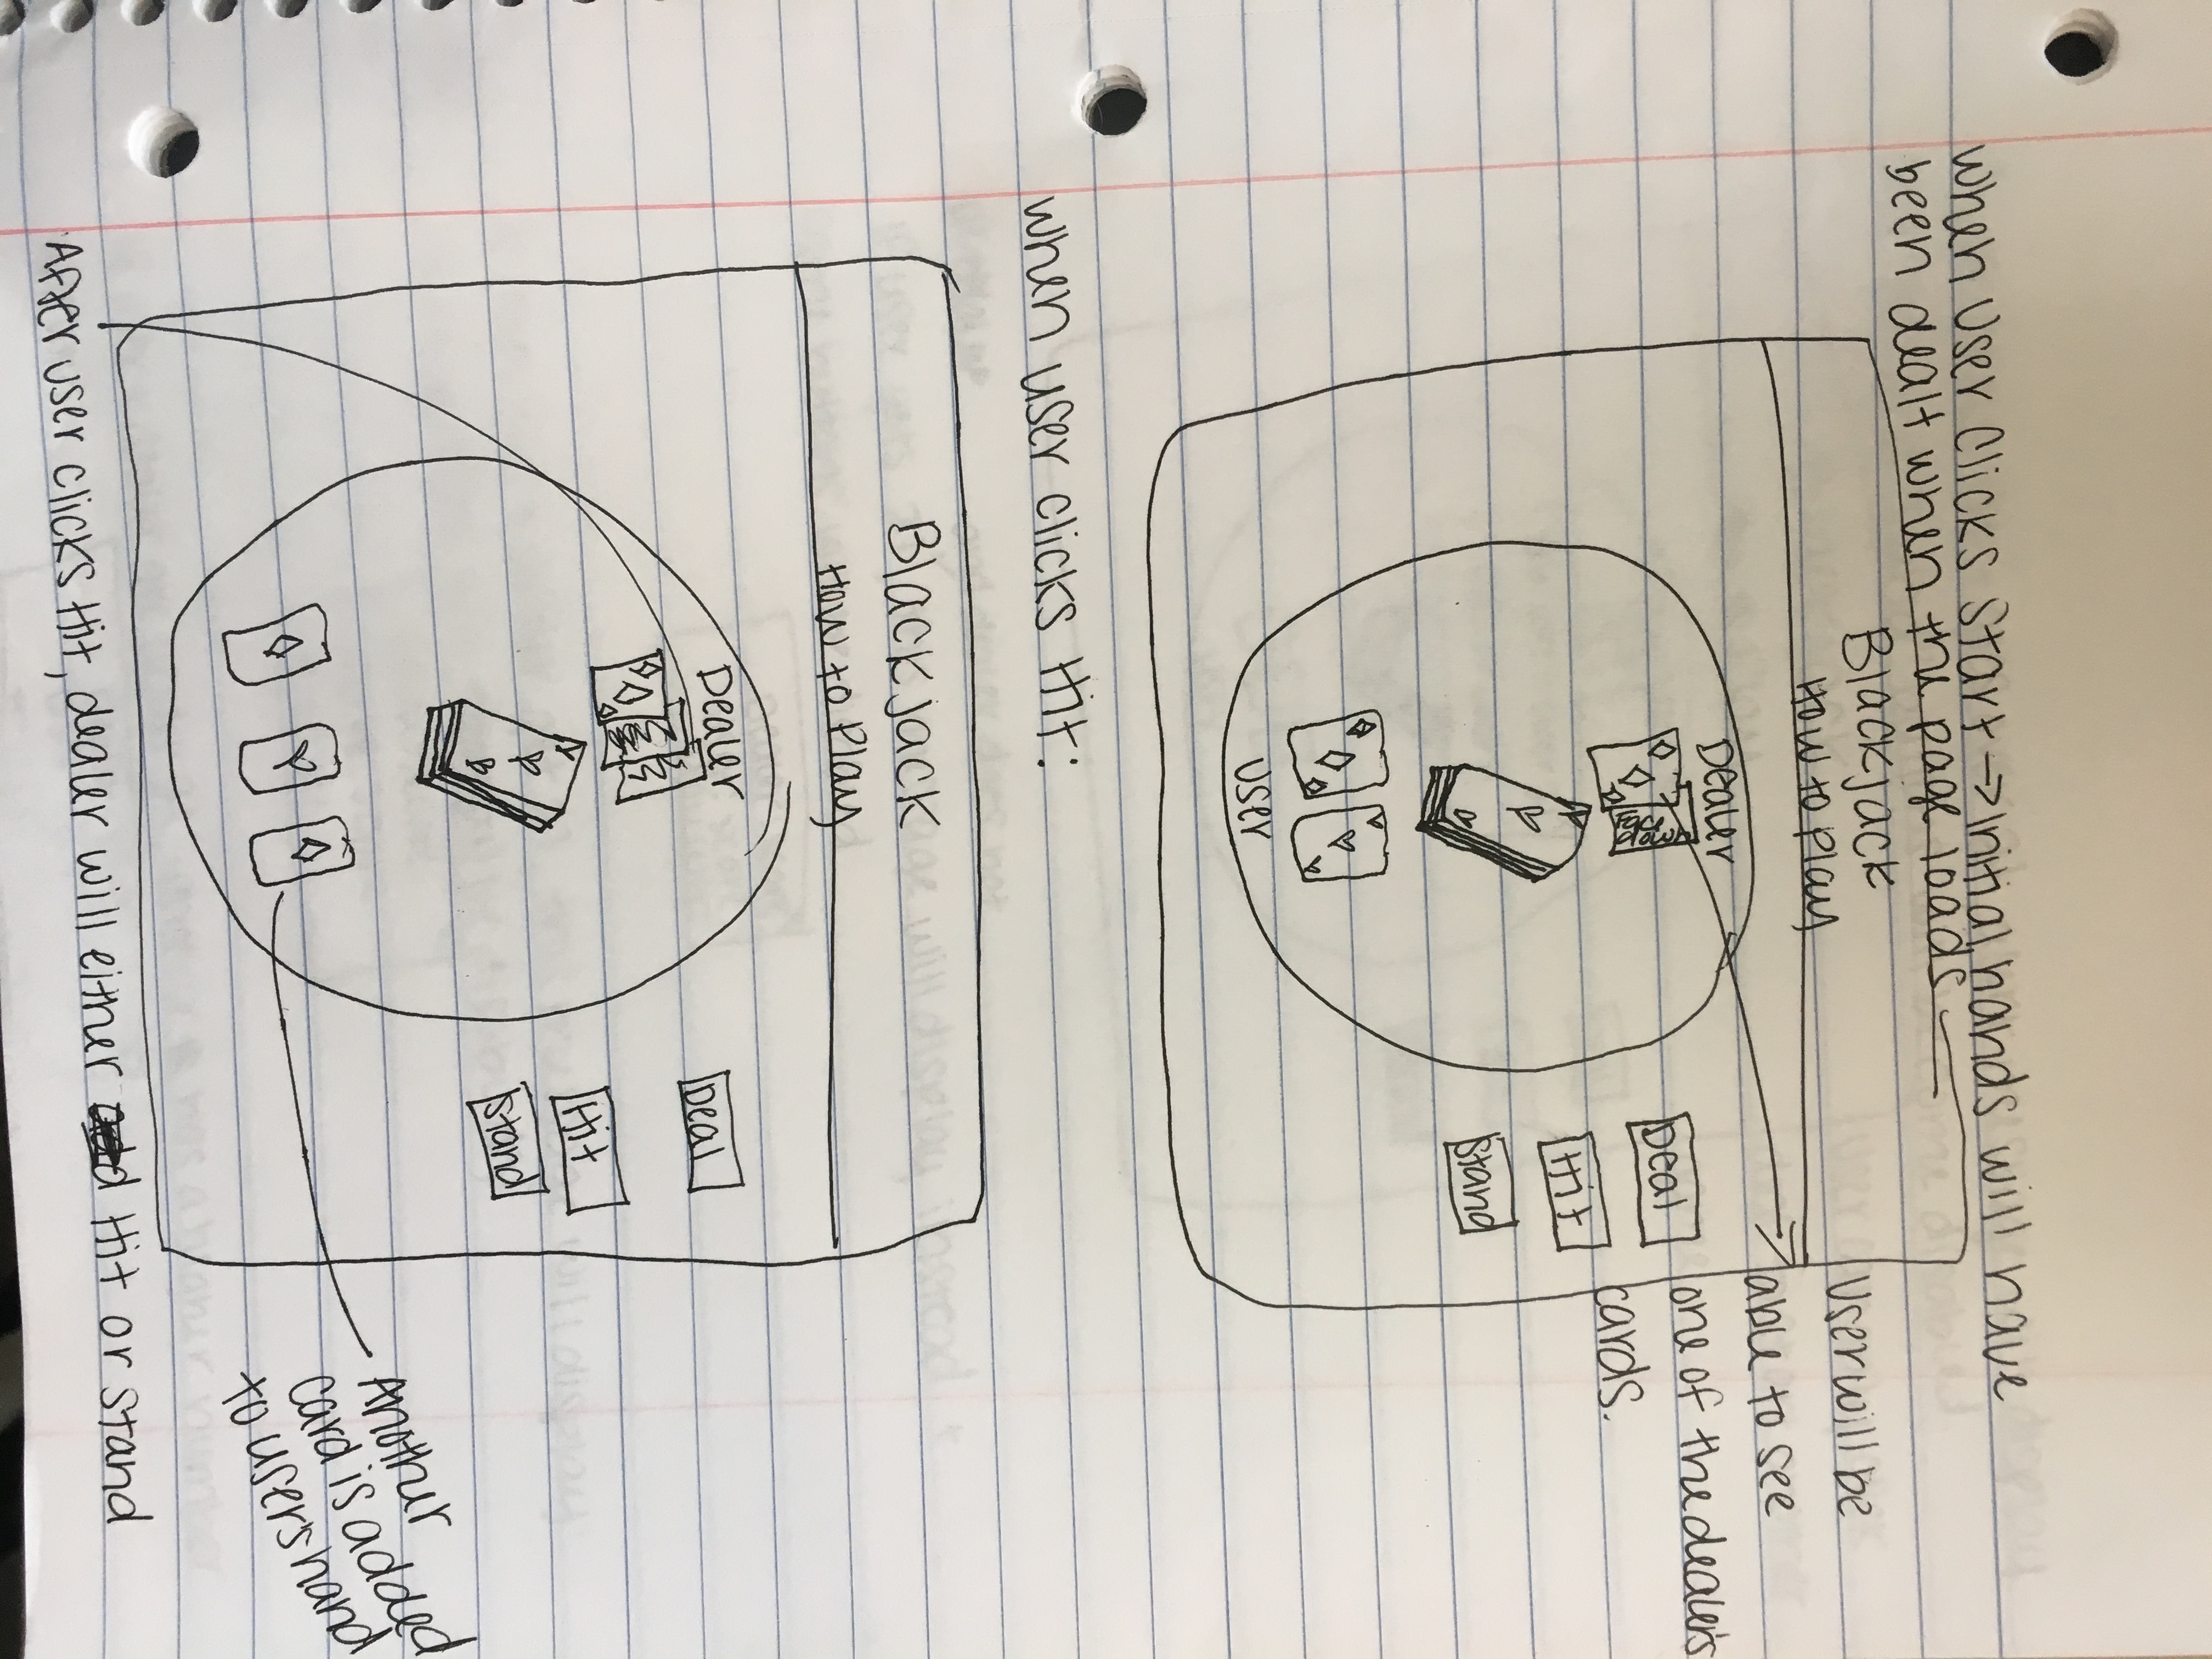 When user clicks Start → initial hands will have
been dealt when the page loads
Blackjack
How to Play
Dealer
Face
down
User
Deal
Hit
Stand
User will be
able to see
one of the dealer's
cards.
When user clicks Hit:
Blackjack
How to Play
Dealer
Deal
Hit
Stand
Another
card is added
to user's hand
After user clicks Hit, dealer will either Hit or Stand